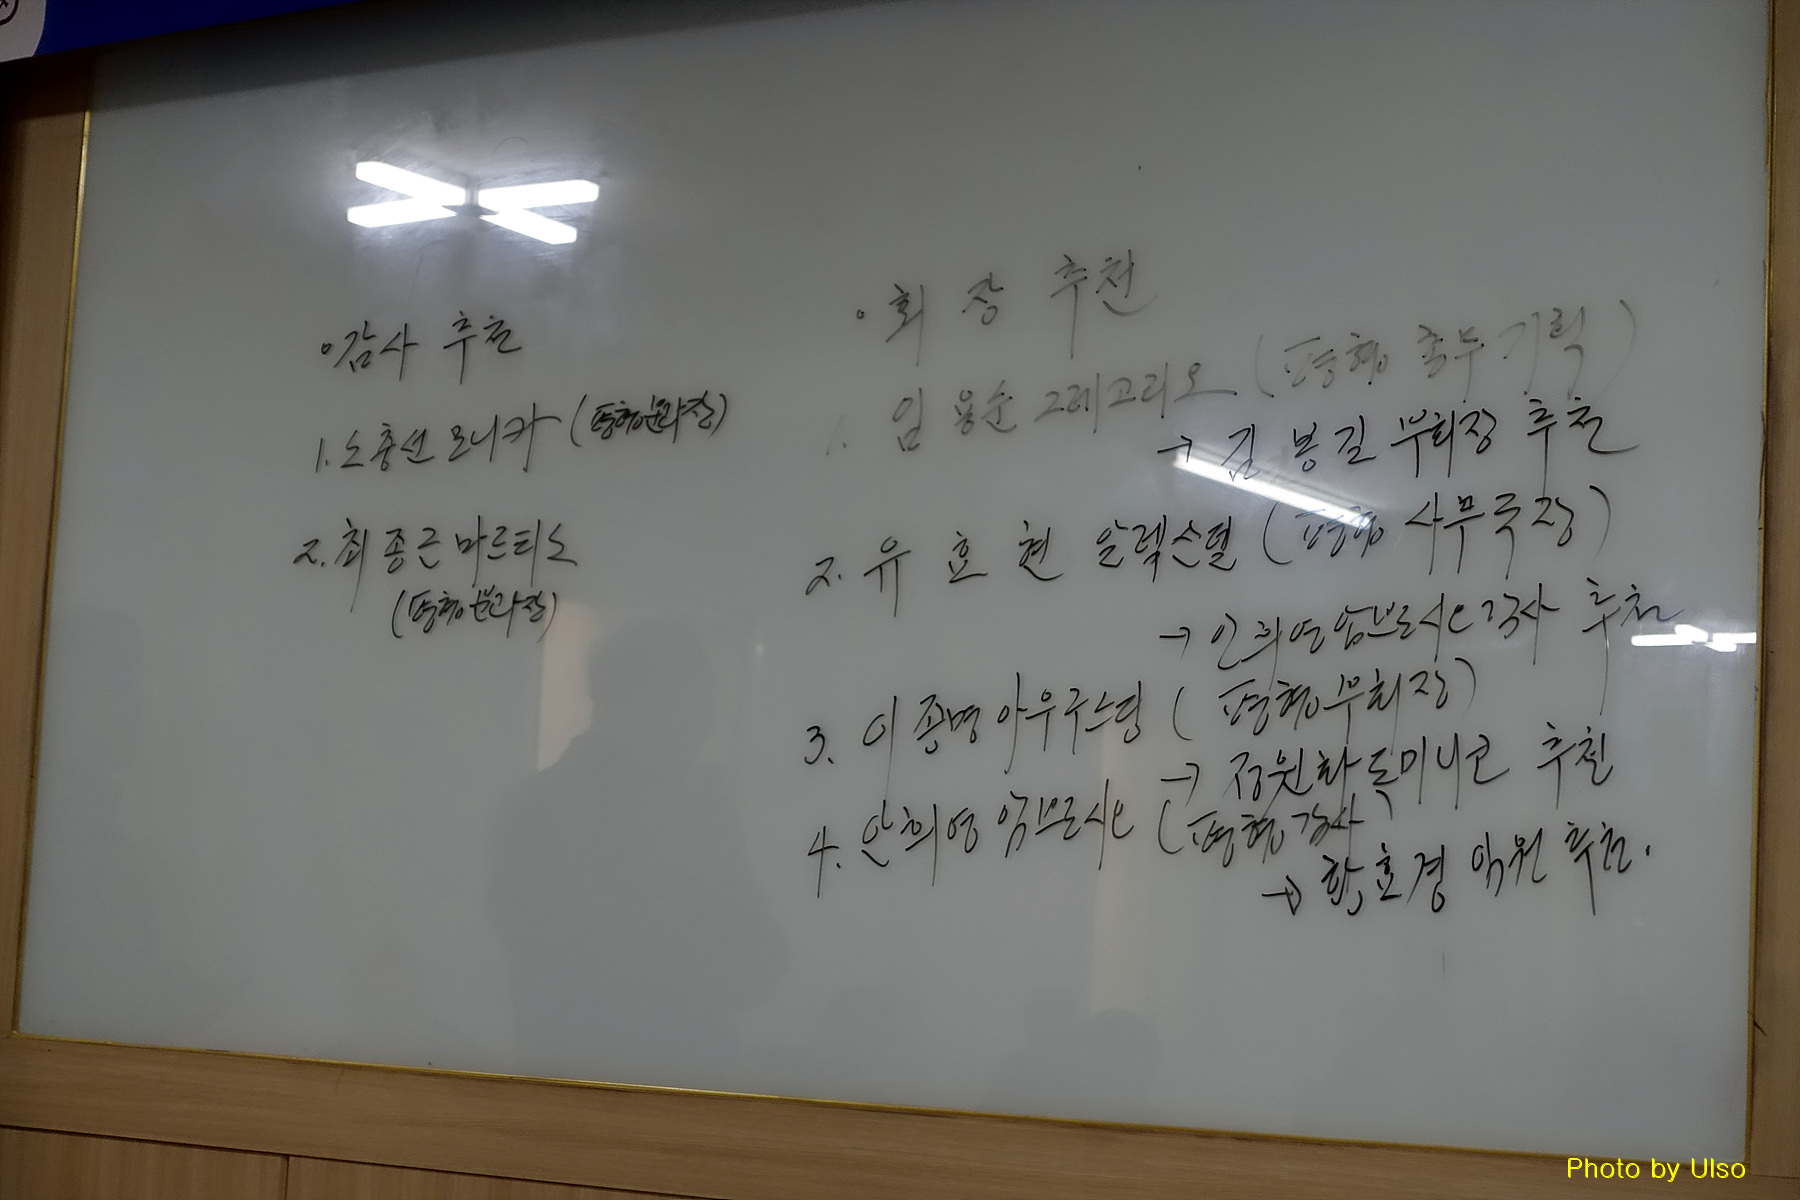 ◦감사 추천
1. 소충선 모니카 (평협분과장)
2. 최종근 마르티노
(평협분과장)
◦회장 추천
1. 임용순 그레고리오 (평협 총무기획)
→ 김봉길 부회장 추천
2. 유효현 알렉산델 (평협 사무국장)
→ 안희영 암브로시오 감사 추천
3. 이종명 아우구스팅 (평협부회장)
→ 정원학 도미니코 추천
4. 안희영 암브로시오 (평협감사)
→ 황효경 위원 추천.
Photo by Ulso